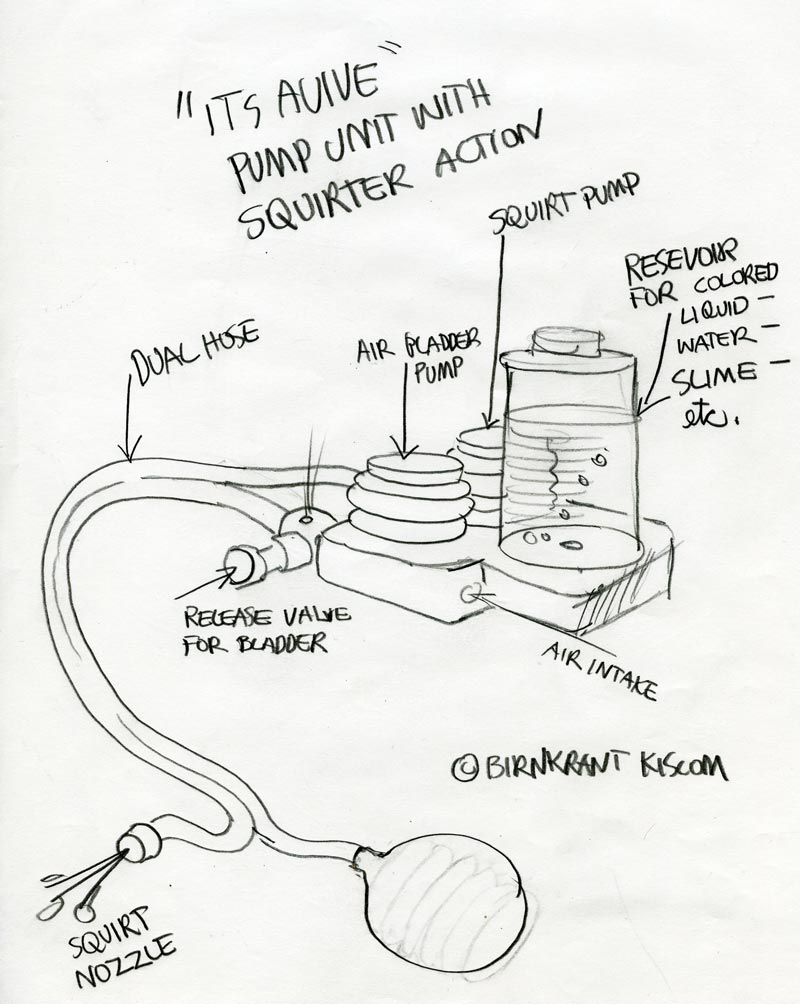 "ITS ALIVE"
PUMP UNIT WITH
SQUIRTER ACTION
SQUIRT PUMP
RESEVOUR
FOR COLORED
LIQUID -
WATER -
SLIME -
etc.
DUAL HOSE
AIR BLADDER
PUMP
RELEASE VALVE
FOR BLADDER
AIR INTAKE
© BIRNKRANT KISCOM
SQUIRT
NOZZLE